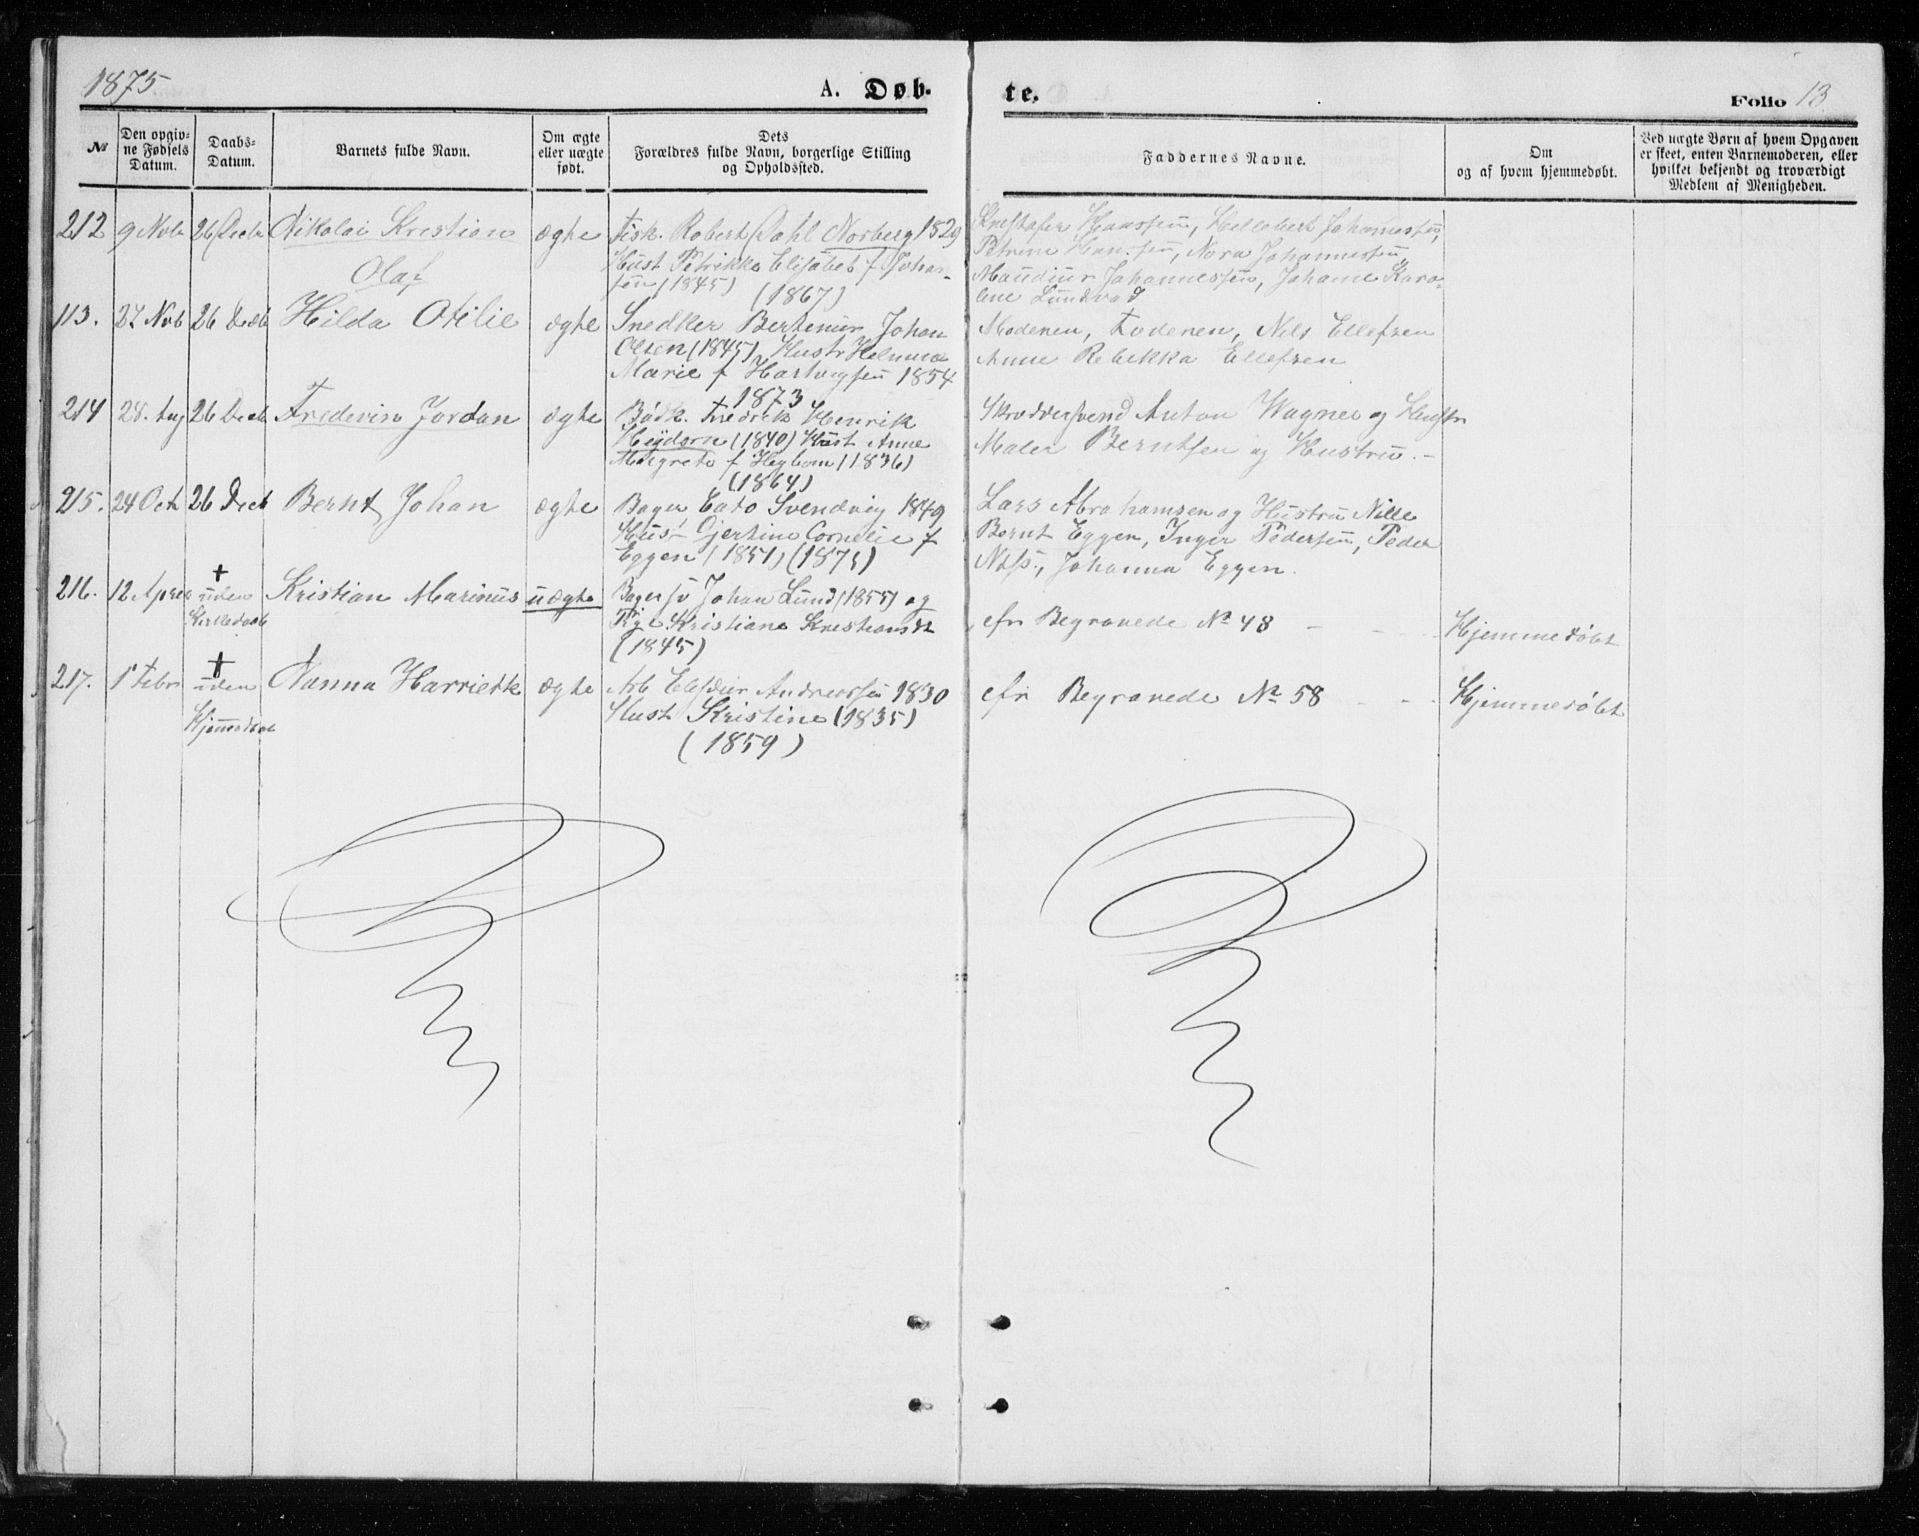 1875
A. Døb-
te.
Folio 13
№
Den opgiv-
ne Fødsels
Datum.
Daabs-
Datum.
Barnets fulde Navn.
Om ægte
eller uægte
født.
Dets
Forældres fulde Navn, borgerlige Stilling
og Opholdssted.
Faddernes Navne.
Om
og af hvem hjemmedøbt.
Ved uægte Børn af hvem Opgaven
er skeet, enten Barnemoderen, eller
hvilket bekjendt og troværdigt
Medlem af Menigheden.
212 9 Nvb 26 Decb Nikolai Kristian ægte Fisk. Robert Dahl Norberg 1529
Olaf
Hust Petrikke Elisabet f Johan-
sen (1845) (1867)
Hanssen, Johannessen,
Petrine Hansen, Nora Johannessen,
Johannessen, Johane Karo-
line Lundvad
113. 27 Nvb 26 Decb Hilda Otilie ægte Snedker Bertinius Johan
Olsen (1845), Hustr Helmina
Marie f Hartvigsen 1854
1873
Moderen, Faderen, Nils Ellefsen
Anne Rebekka Ellefsen
214 28. Aug 26 Decb Frederin Jordan ægte Bødk. Fredrik Henrik
Heidorn (1840) Hust Anne
Margrete f Hegbom (1836)
(1864)
Skræddersvend Anton Wagner og Hustr
Maler Berntsen og Hustru. -
215. 24 Oct 26 Decb Bernt Johan ægte Bager Cato Svendvig 1849
Hus- Gjertine Cornelie f
Eggen (1851) (1875)
Lars Abrahamsen og Hustru Nille
Bernt Eggen, Inger Pedersen, Peder
Nilss., Johanna Eggen.
216. 12 April + uden
Kirkedaab
Kristian Marinus uægte Bagersv Johan Lund (1855) og
Pige Kristiane Kristiansdt
(1845)
cfr Begravede № 48 - - - Hjemmedøbt
217. 1 Febr + uden
Hjemmedaab
Nanna Harriette ægte Arb Andreassen 1830
Hust Kristine (1835)
(1859)
cfr Begravede № 58 - - - Hjemmedøbt